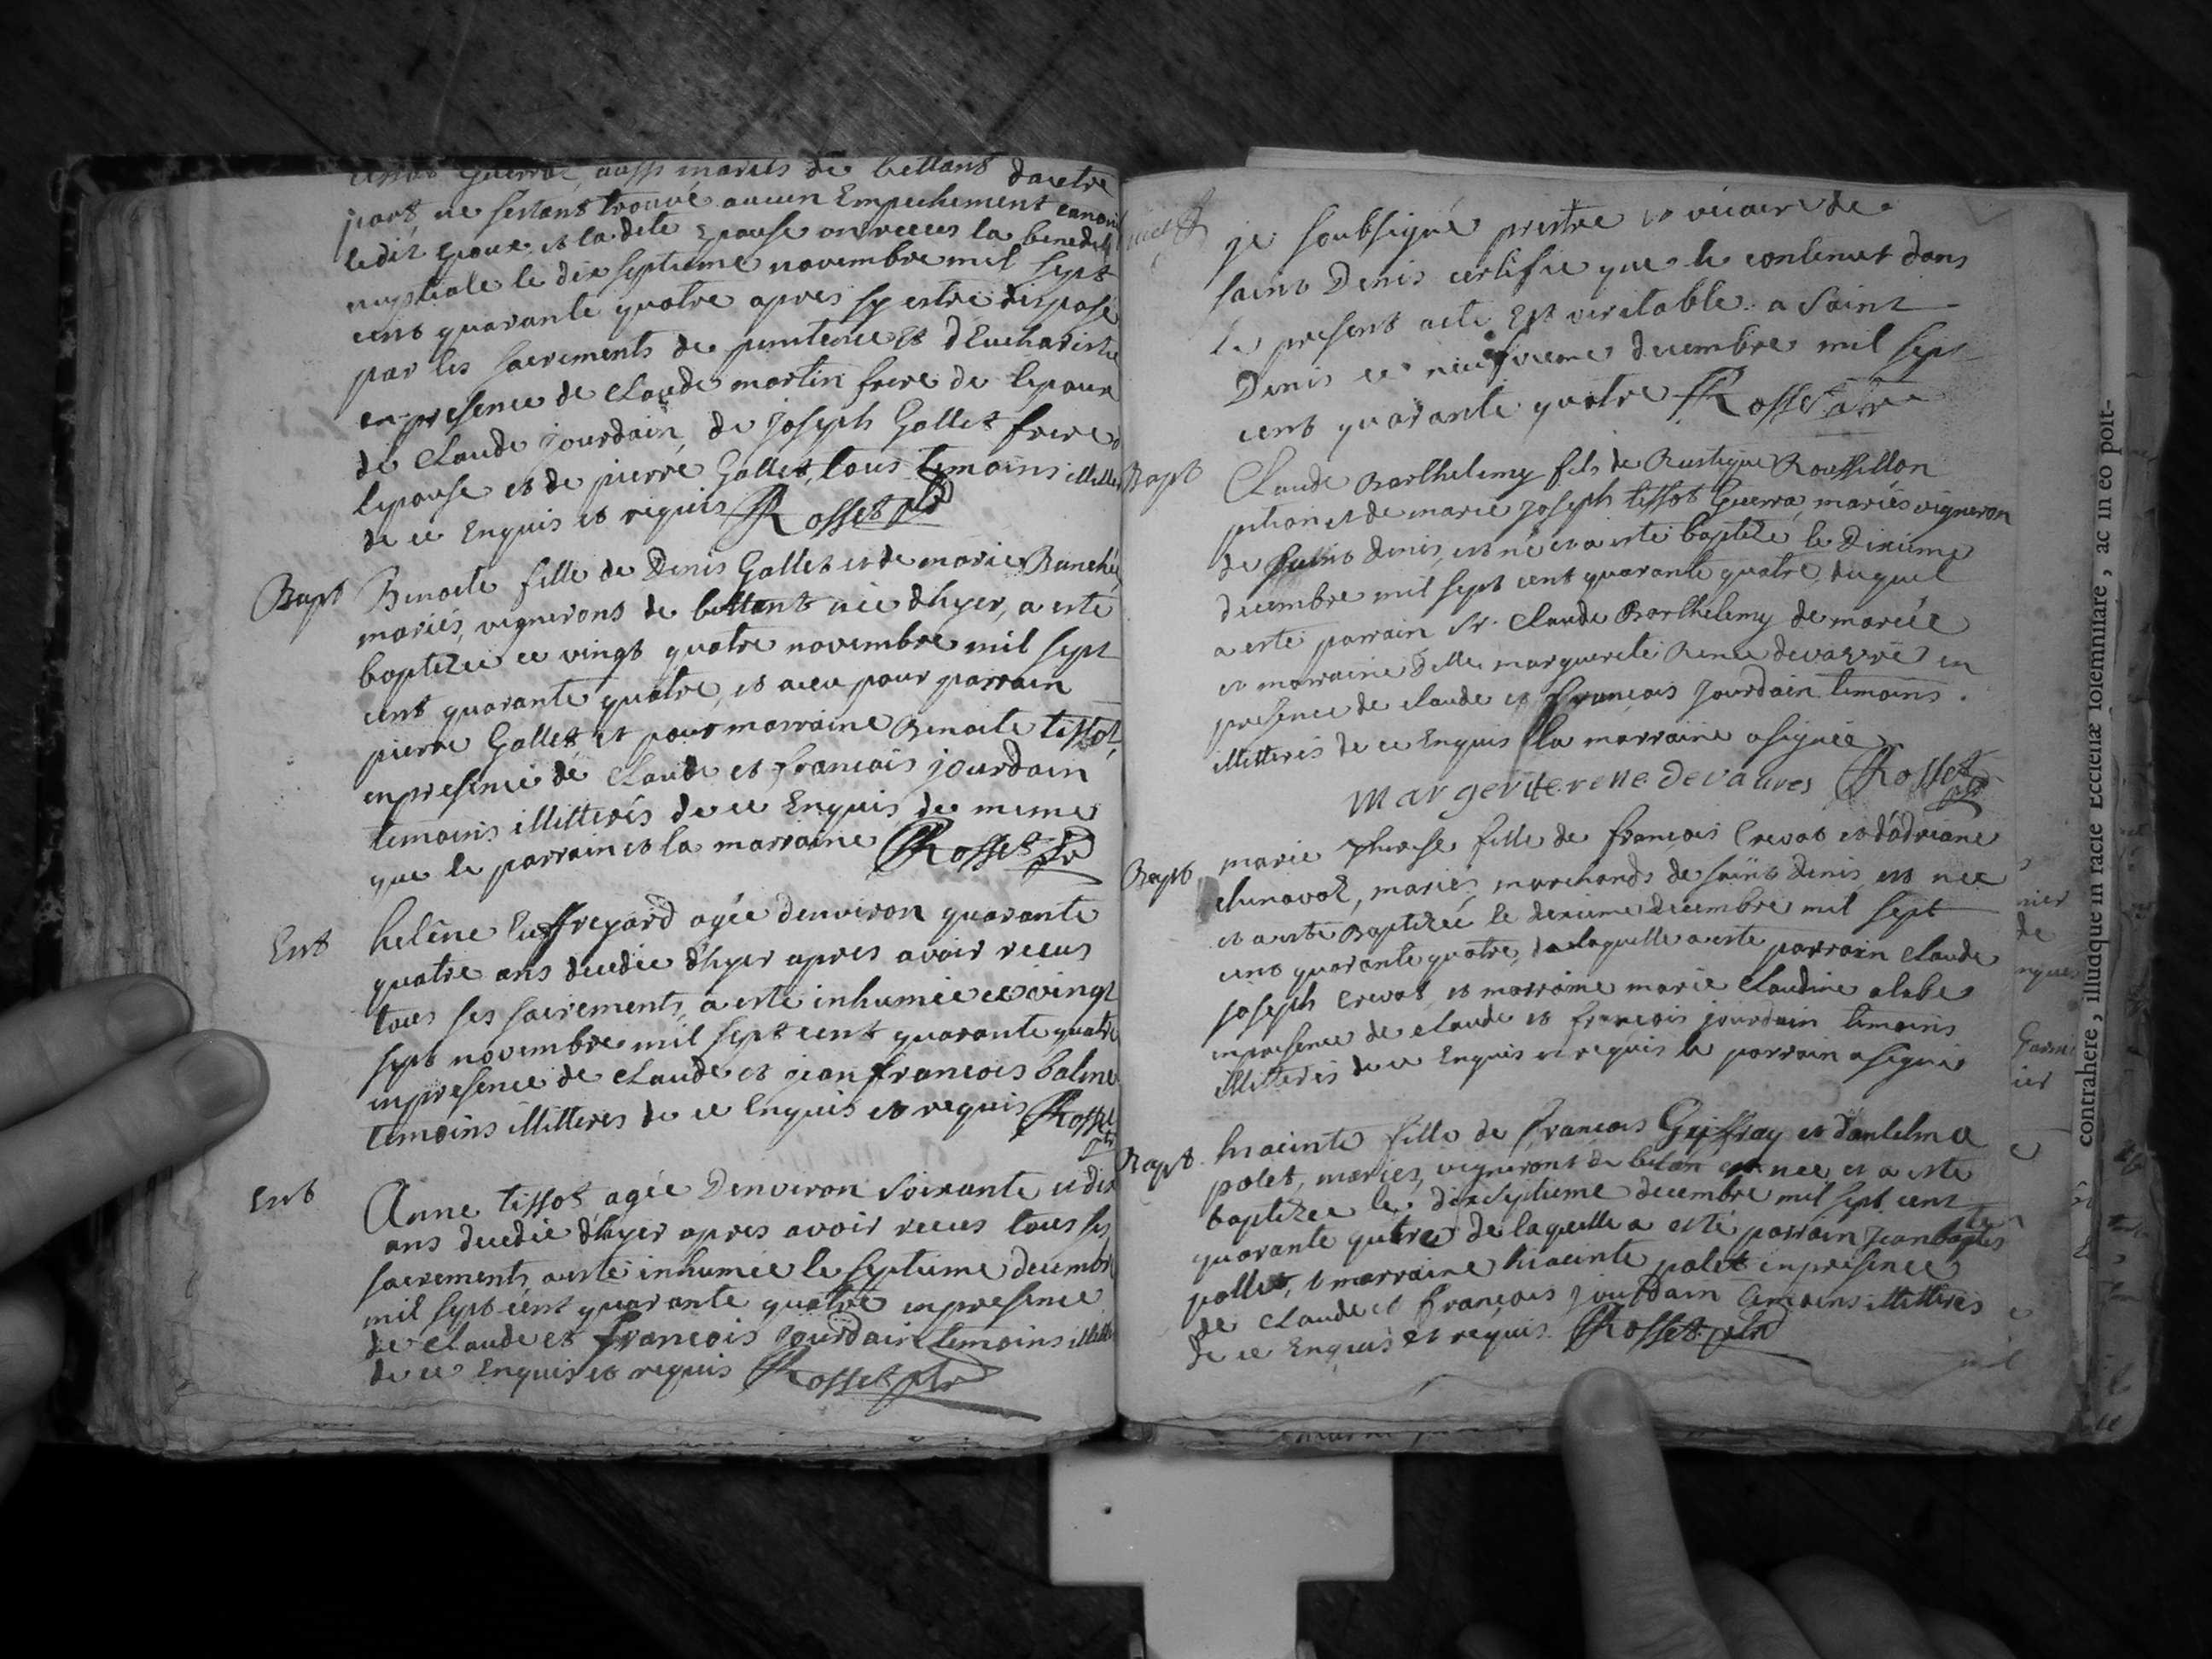 Guerrat, aussi mariés de bettant dautre
part, ne sestant trouvé aucun Empechement
ledit Epoux et la dite Epouse on receus la
nuptiale le dix septieme novembre mil sept
cent quarante quatre apres sy estre disposé
par les sacrements de penitence et d'Eucharistie
en presence de Claude martin frere de lepoux
de Claude jourdain, de joseph Gallet frere d
lepouse et de pierre Gallet, tous temoins
de ce Enquis et requis Rosset ptr
Bapt Benoite fille de Denis Gallet et de marie
mariés, vignerons de bettant née d'hyer, a esté
baptizée ce vingt quatre novembre mil sept
cent quarante quatre, et a eu pour parrain
pierre Gallet et pour marraine Benoite tissot,
en presence de Claude et francois jourdain
temoins illitterés de ce Enquis de meme
que le parrain et la marraine Rosset ptr
Ent helêne agée denviron quarante
quatre ans decedée d'hyer apres avoir receus
tous ses sacrements, a esté inhumée ce vingt
sept novembre mil sept cent quarante quatre
en presence de Claude et jean francois balme
temoins illitteres de ce Enquis et requis Rosset
ptr
Ent Anne tissot, agée Denviron soixante et dix
ans decedée d'hyer apres avoir receus tous ses
sacrements, a esté inhumée le septieme decembre
mil sept cent quarante quatre en presence
de Claude et francois jourdain temoins
de ce Enquis et requis Rosset ptr
je soubsigné prestre et vicaire de
saint Denis certifie que le contenut dans
le present acte Est veritable. a Saint
Denis ce neufvieme decembre mil sept
cent quarante quatre Rosset
Bapt Claude Barthelemy fils de Rustique Roussillon
et de marie joseph tissot Guerra, mariés vigneron
de saint denis, est né et a esté baptizé le Dixieme
decembre mil sept cent quarante quatre, duquel
a esté parrain Sr. Claude Barthelemy de
et marraine Dlle marguerite Renee en
presence de claude et francois jourdain temoins
illitterés de ce Enquis la marraine a signée
Rosset ptr
Bapt marie therese fille de francois Crevat et d'adriane
chunavol, mariés, marchands de saint denis, est nee
et a esté Baptizée le dixieme decembre mil sept
cent quarante quatre, de laquelle a esté parrain claude
joseph Crevat, et marraine marie Claudine alabe
en presence de claude et francois jourdain temoins
illitterés de ce Enquis et requis le parrain a signé
Bapt. hiacinte fille de francois Geoffray et d'antelma
polet, mariés, vignerons de betan est nee et a esté
baptizée le dixseptieme decembre mil sept cent
quarante qutre de laquelle a esté parrain jean baptiste
pollet, et marraine hiacinte polet en presence
de claude et francois jourdain temoins illitteres
de ce Enquis et requis Rosset ptr
contrahere, illudque in facie Ecclesiæ solemnifare, ac in eo poit-